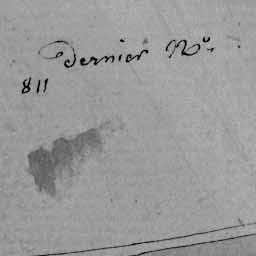 Dernier No.
811